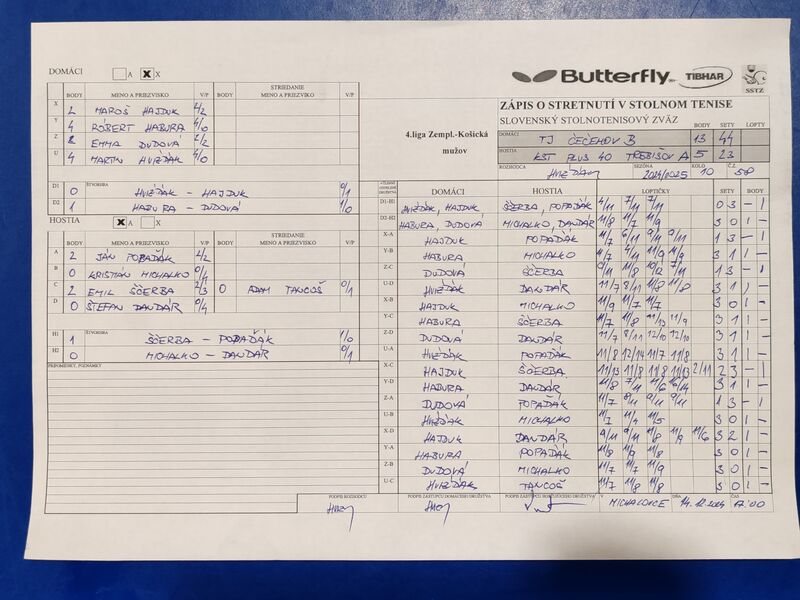 DOMÁCI A X X
Butterfly TIBHAR SSTZ
BODY MENO A PRIEZVISKO V/P BODY STRIEDANIE MENO A PRIEZVIKO V/P
X 2 MAROŠ HAJDUK 2/2
Y 4 RÓBERT HABURA 4/0
Z 2 EMMA DUDOVÁ 2/2
U 4 MARTIN HVIŽĎÁK 4/0
ZÁPIS O STRETNUTÍ V STOLNOM TENISE
SLOVENSKÝ STOLNOTENISOVÝ ZVÄZ
4.liga Zempl.-Košická mužov
BODY SETY LOPTY
DOMÁCI TJ ČEČEHOV B 13 44
HOSTIA KST PLUS 40 TREBIŠOV A 5 23
ROZHODCA HVIŽĎÁK SEZÓNA 2024/2025 KOLO 10 Č.Z. 58
D1 ŠTVORHRA 0 HVIŽĎÁK - HAJDUK 0/1
D2 1 HABURA - DUDOVÁ 1/0
HOSTIA A X X
BODY MENO A PRIEZVISKO V/P BODY STRIEDANIE MENO A PRIEZVISKO V/P
A 2 JÁN POPAĎÁK 2/2
B 0 KRISTIÁN MICHALKO
C 2 EMIL ŠČERBA 2/3 0 ADAM TANCOŠ 0/1
D 0 ŠTEFAN DANDÁR 0/4
H1 ŠTVORHRA 1 ŠČERBA - POPAĎÁK 1/0
H2 0 MICHALKO - DANDÁR 0/1
PRIPOMIENKY, POZNÁMKY
DOMÁCI HOSTIA LOPTIČKY SETY BODY
D1-H1 HVIŽĎÁK, HAJDUK ŠČERBA, POPAĎÁK 4/11 7/11 7/11 0 3 - 1
D2-H2 HABURA, DUDOVÁ MICHALKO, DANDÁR 11/8 11/7 11/9 3 0 1 -
X-A HAJDUK POPAĎÁK 11/7 6/11 9/11 9/11 1 3 - 1
Y-B HABURA MICHALKO 11/7 4/11 11/9 11/9 3 1 1 -
Z-C DUDOVÁ ŠČERBA 11/8 10/12 7/11 1 3 - 1
U-D HVIŽĎÁK DANDÁR 11/7 8/11 11/8 11/8 3 1 1 -
X-B HAJDUK MICHALKO 11/9 11/7 11/7 3 0 1 -
Y-C HABURA ŠČERBA 11/7 11/8 11/13 11/9 3 1 1 -
Z-D DUDOVÁ DANDÁR 11/7 8/11 12/10 12/10 3 1 1 -
U-A HVIŽĎÁK POPAĎÁK 11/8 12/14 11/7 11/8 3 1 1 -
X-C HAJDUK ŠČERBA 11/13 11/8 11/8 11/13 2/11 2 3 - 1
Y-D HABURA DANDÁR 11/8 7/11 11/6 3 1 1 -
Z-A DUDOVÁ POPAĎÁK 11/7 8/11 9/11 9/11 1 3 - 1
U-B HVIŽĎÁK MICHALKO 11/7 11/4 11/5 3 0 1 -
X-D HAJDUK DANDÁR 9/11 9/11 11/8 11/9 11/6 3 2 1 -
Y-A HABURA POPAĎÁK 11/8 11/9 11/8 3 0 1 -
Z-B DUDOVÁ MICHALKO 11/7 11/7 11/9 3 0 1 -
U-C HVIŽĎÁK TANCOŠ 11/7 11/8 11/8 3 0 1 -
PODPIS ROZHODCU PODPIS ZÁSTUPCU DOMÁCEHO DRUŽSTVA PODPIS ZÁSTUPCU HOSŤUJÚCEHO DRUŽSTVA V MICHALOVCE DŇA 14.12.2024 ČAS 17:00